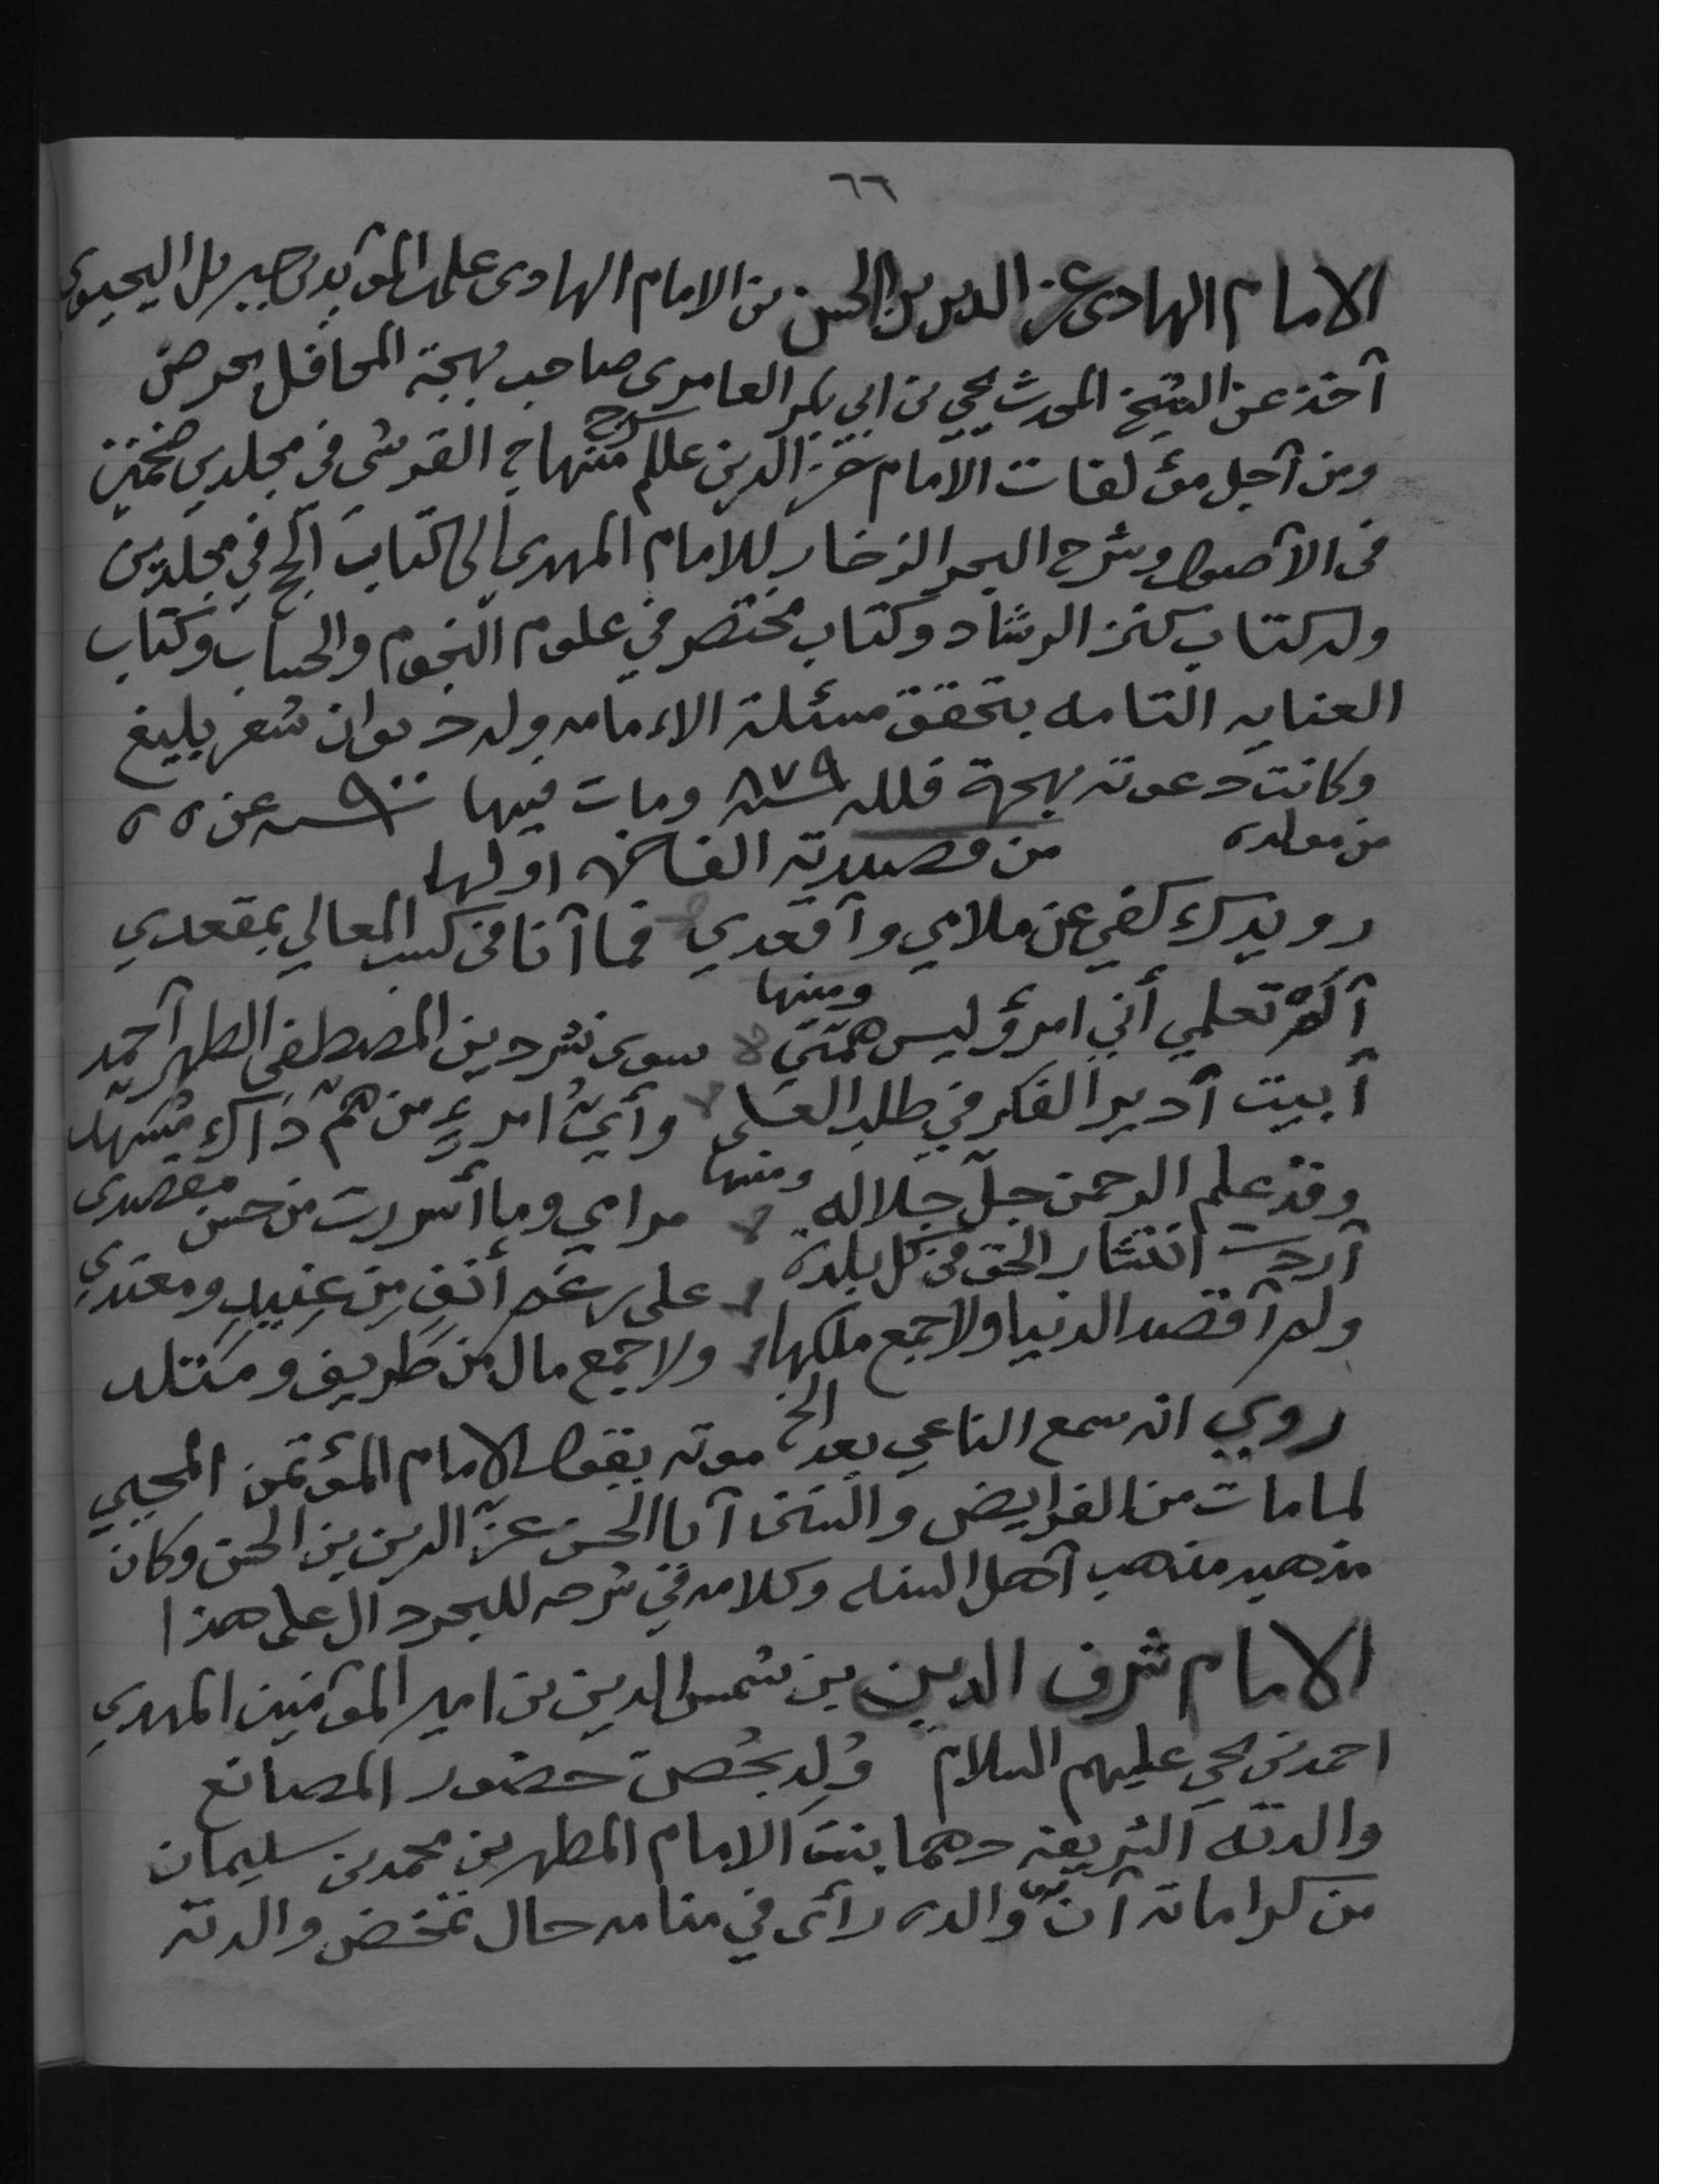 ٦٦
الامام الهادى عز الدين بن الحسن بن الامام الهادى على بن المؤيد بن جبريل اليحيوى
أخذ عن الشيخ المحدث يحي بن ابي بكر العامرى صاحب بهجة المحافل بحرض
ومن أجل مؤلفات الامام عز الدين علم شرح منهاج القرشى في مجلدين ضخمين
فى الأصول وشرح البحر الزخار للامام المهدى الى كتاب الحج في مجلدين
وله كتاب كنز الرشاد وكتاب مختصر في علوم النجوم والحساب وكتاب
العنايه التامه بتحقق مسئلة الامامه وله ديوان شعر بليغ
وكانت دعوته بهجرة فلله سنة ٨٧٩ ومات فيها سنة ٩٠٠ عن ٥٥
من مولده من قصيدته اولها
رويدك كفي عن ملامي وأقعدي فما أنا فى كسب المعالي بمقعدي
ومنها
ألم تعلمي أني امرؤ ليس همتي سوى نشر دين المصطفى الطهر أحمد
أبيت أدير الفكر في طلب العلى وأيّ امرءٍ من همّ ذاك مُسَهّد
ومنها
وقد علم الرحمن جلّ جلاله مرامي وما أسررت من حسن مقصدى
أردت انتشار الحق فى كل بلدة على رغم أنفِ مِن عنيدٍ ومعتدي
ولم أقصد الدنيا ولا جمع ملكها ولا جمع مال من طريف ومتلد
الخ
روي انه سمع الناعي بعد موته يقول الامام المؤتمن المحيي
لما مات من الفرايض والسنن أبا الحسن عزّ الدين بن الحسن وكان
مذهبه مذهب أهل السنه وكلامه في شرحه للبحر دال على هذا
الامام شرف الدين بن شمس الدين بن امير المؤمنين المهدي
احمد بن يحي عليهم السلام وُلِد بحُصن حضور المصانع
والدته الشريفة دهما بنت الامام المطهر بن محمد بن سليمان
من كراماته أنّ والده رأى في منامه حال تمخض والدته